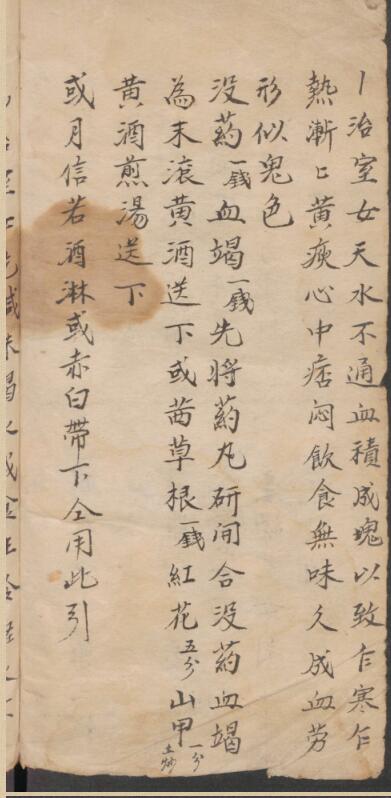 丨治室女天水不通血積成塊以致乍寒乍
熱漸〻黄瘐心中痞闷飲食無味久成血劳
形似鬼色
没药一錢血竭一錢先将药丸研闲合没药血竭
為末滚黄酒送下或茜草根一錢紅花五分山甲一分土炒
黄酒煎湯送下
或月信若酒淋或赤白帶下仝用此引